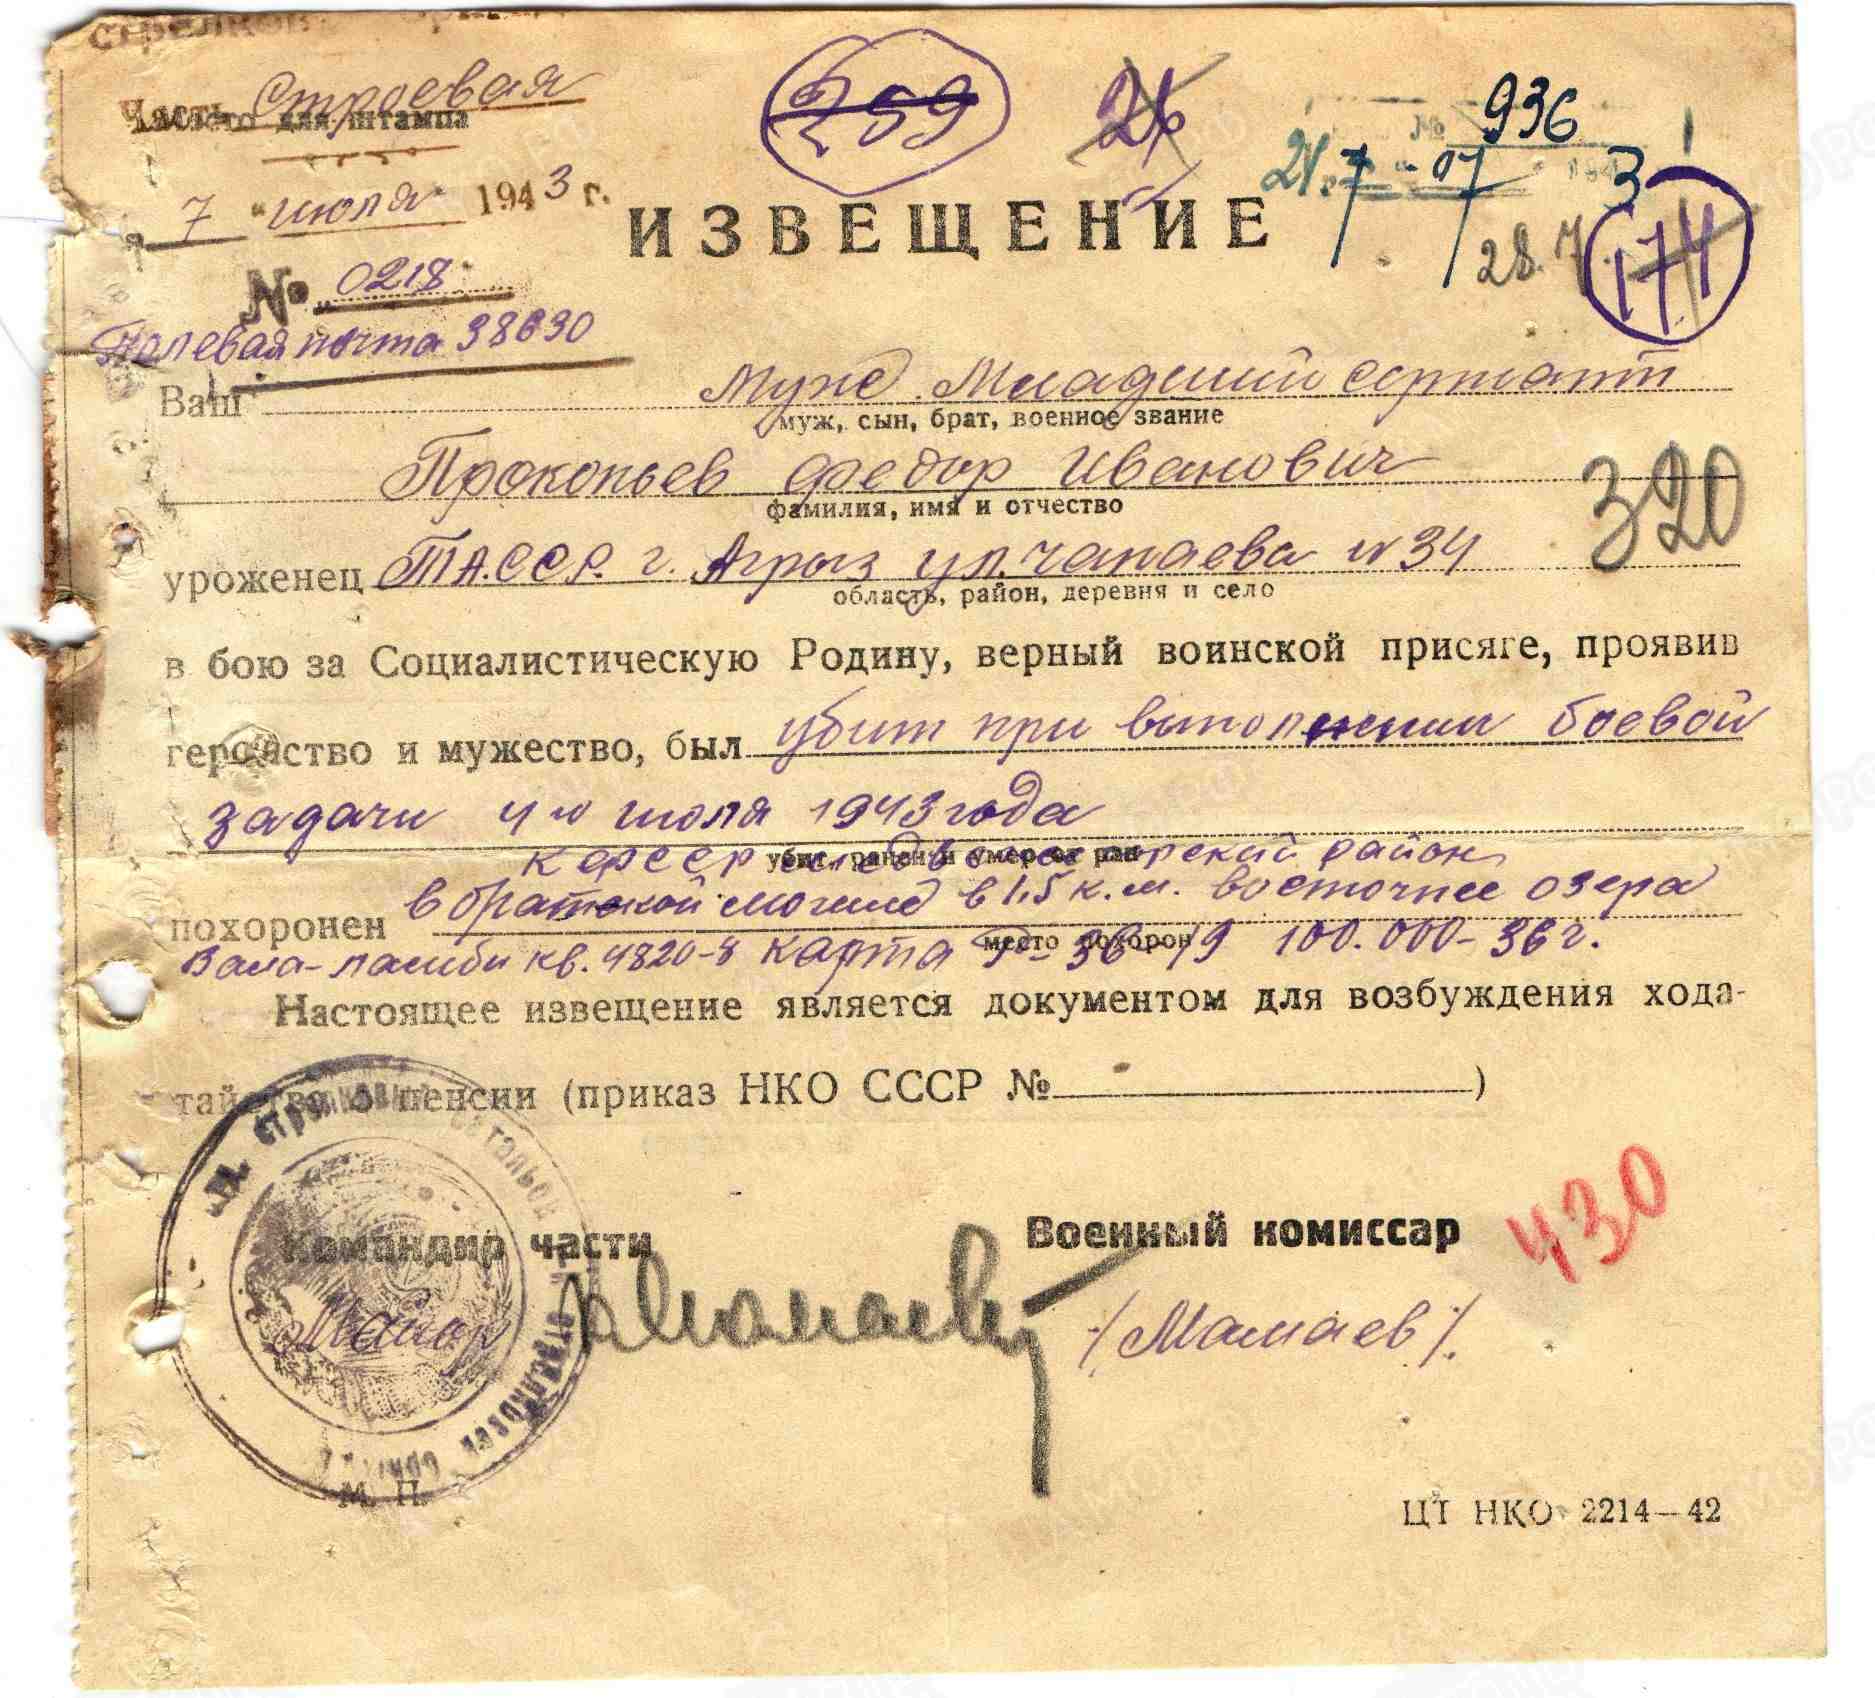 стрелков
Часть Строевая
Место для штампа
259 26 № 936
7 " июля 1943 г. 21. 7 - 07 3
ИЗВЕЩЕНИЕ 28.7. 174
№ 0218
Полевая почта 38630
Ваш Муж Младший сержант
муж, сын, брат, военное звание
Прокопьев Федор Иванович 320
фамилия, имя и отчество
уроженец ТА.ССР. г. Агрыз ул. Чапаева №34
область, район, деревня и село
в бою за Социалистическую Родину, верный воинской присяге, проявив
геройство и мужество, был убит при выполнении боевой
задачи 4 го июля 1943 года
убит, ранен и умер от ран
КФССР район
похоронен в братской могиле в 1,5 к.м. восточнее озера
место похорон
Вама-ламби кв. 4820-8 карта 36-19 100.000-36 г.
Настоящее извещение является документом для возбуждения хода-
тайства о пенсии (приказ НКО СССР № )
Командир части Военный комиссар 430
Майор Мамаев /Мамаев/.
М. П.
ЦТ НКО 2214—42